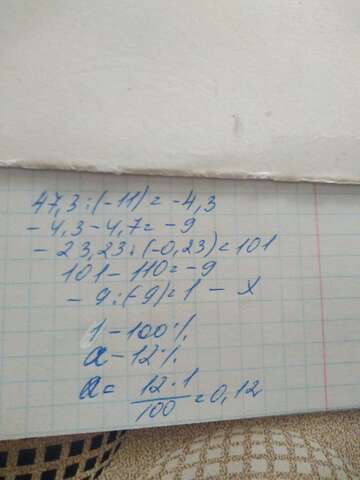 47,3:(-11)=-4,3
-4,3-4,7=-9
-23,23:(-0,23)=101
101-110=-9
-9:(-9)=1 - x
1-100%
x-12%
x= 12·1/100 =0,12